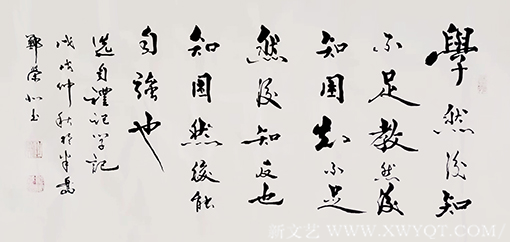 學然後知
不足教然後
知困知不足
然後知反也
知困然後能
自強也
选自禮记学記
戊戌仲秋於半島
鄭榮
新文艺 WWW.XWYQT.COM/